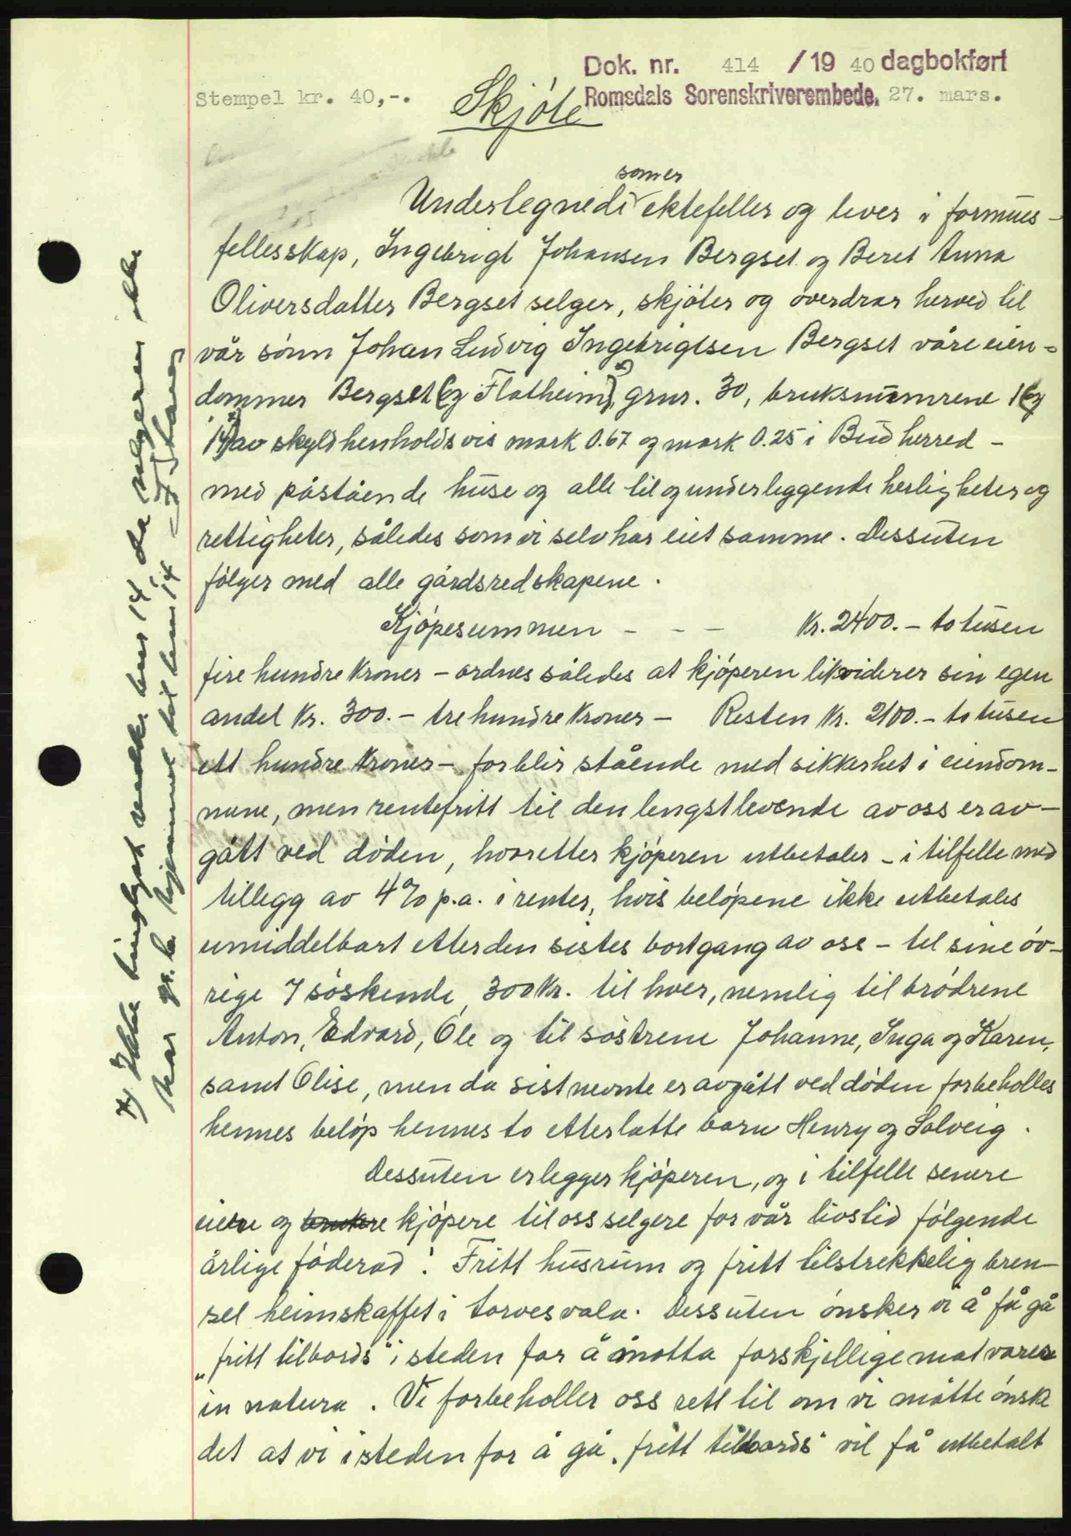 Dok. nr. 414 /19 40 dagbokført
Stempel kr. 40,-. Romsdals Sorenskriverembede. 27. mars.
Skjøte
somer
Underlegnede ektefeller og lever i formues-
fellesskap, Ingebrigt Johansen Bergset og Beret Anna
Oliversdatter Bergset selger, skjøter og overdrar herved til
vår sønn Johan Ludvig Ingebrigtsen Bergset våre eien-
dommer Bergset (og Flatheim), grnr. 30, bruksnumrene 1 (og
14) av skyld henholdsvis mark 0.67 og mark 0.25 i Bud herred -
med påstående huse og alle til og underliggende herligheter og
rettigheter, således som vi selv har eiet samme. Dessuten
følger med alle gårdsredskapene.
Kjøpesummen - - - Kr. 2400.- to tusen
fire hundre kroner - ordnes således at kjøperen likviderer sin egen
andel Kr. 300.- tre hundre kroner - Resten Kr. 2100.- to tusen
ett hundre kroner - forblir stående med sikkerhet i eiendom-
mene, men rentefritt til den lengstlevende av oss er av-
gått ved døden, hvoretter kjøperen utbetaler - i tilfelle med
tillegg av 4% p.a. i renter, hvis beløpene ikke utbetales
umiddelbart etter den sistes bortgang av oss - til sine øv-
rige 7 søskende, 300 Kr. til hver, nemlig til brødrene
Anton, Edvard, Ole og til søstrene Johanne, Inga og Karen,
samt Olise, men da sistnevnte er avgått ved døden forbeholdes
hennes beløp hennes to etterlatte barn Henry og Solveig.
Dessuten erlegger kjøperen, og i tilfelle senere
eiere og brukere kjøpere til oss selgere for vår livstid følgende
årlige føderåd: Fritt husrum og fritt tilstrekkelig bren-
sel heimskaffet i torvesvala. Dessuten ønsker vi å få gå
"fritt tilbords" i steden for å motta forskjellige matvarer
in natura. Vi forbeholler oss rett til om vi måtte ønske
det at vi i steden for å gå "fritt tilbords" vil få utbetalt
x) Ikke tinglyst bnr. 14, da selgeren ikke
har hjemmel til bnr. 14